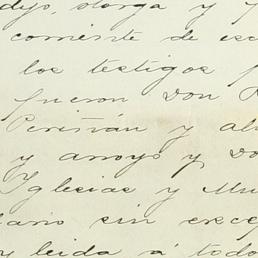 dijo, otorga y f
corriente de esc
los testigos f
fueron Don R
Peristán y al
y arroyo y Do
Iglesias y Mu
dario sin exce
y leida á todo